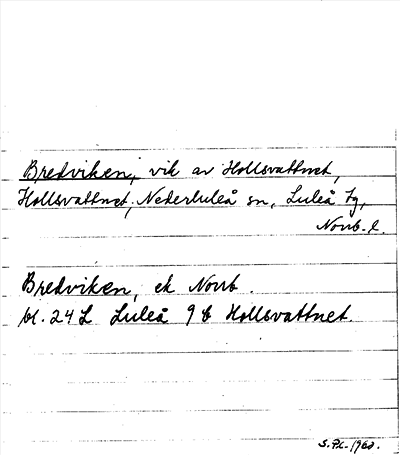 Bredviken, vik av Hollsvattnet,
Hollsvattnet, Nederluleå sn, Luleå tg,
Norrb. l.
Bredviken, ek Norrb.
bl. 24 L Luleå 9 b Hollsvattnet.
1960.